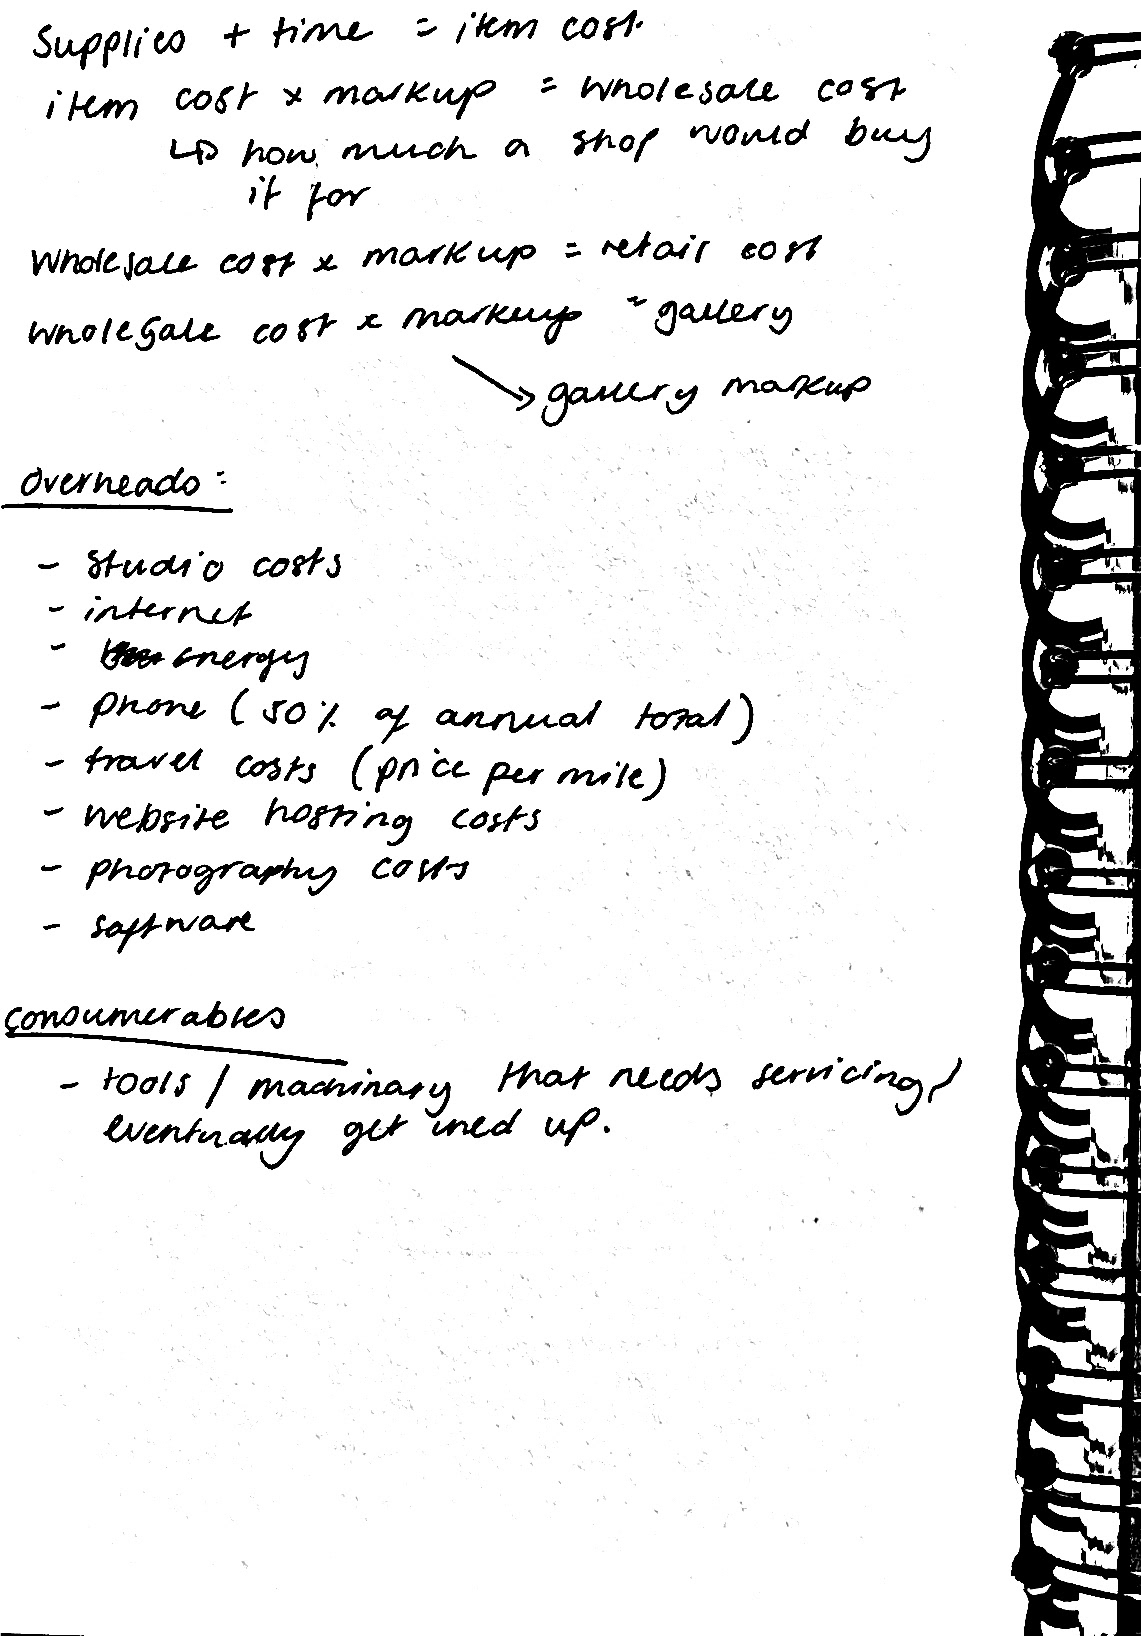 Supplies + time = item cost
item cost x markup = wholesale cost
↳ how much a shop would buy
it for
Wholesale cost x markup = retail cost
Wholesale cost x markup = gallery
→ gallery markup
Overheads:
- Studio costs
- internet
- energy
- phone (50% of annual total)
- travel costs (price per mile)
- website hosting costs
- photography costs
- software
Consumerables
- tools / machinary that needs servicing /
eventually get used up.